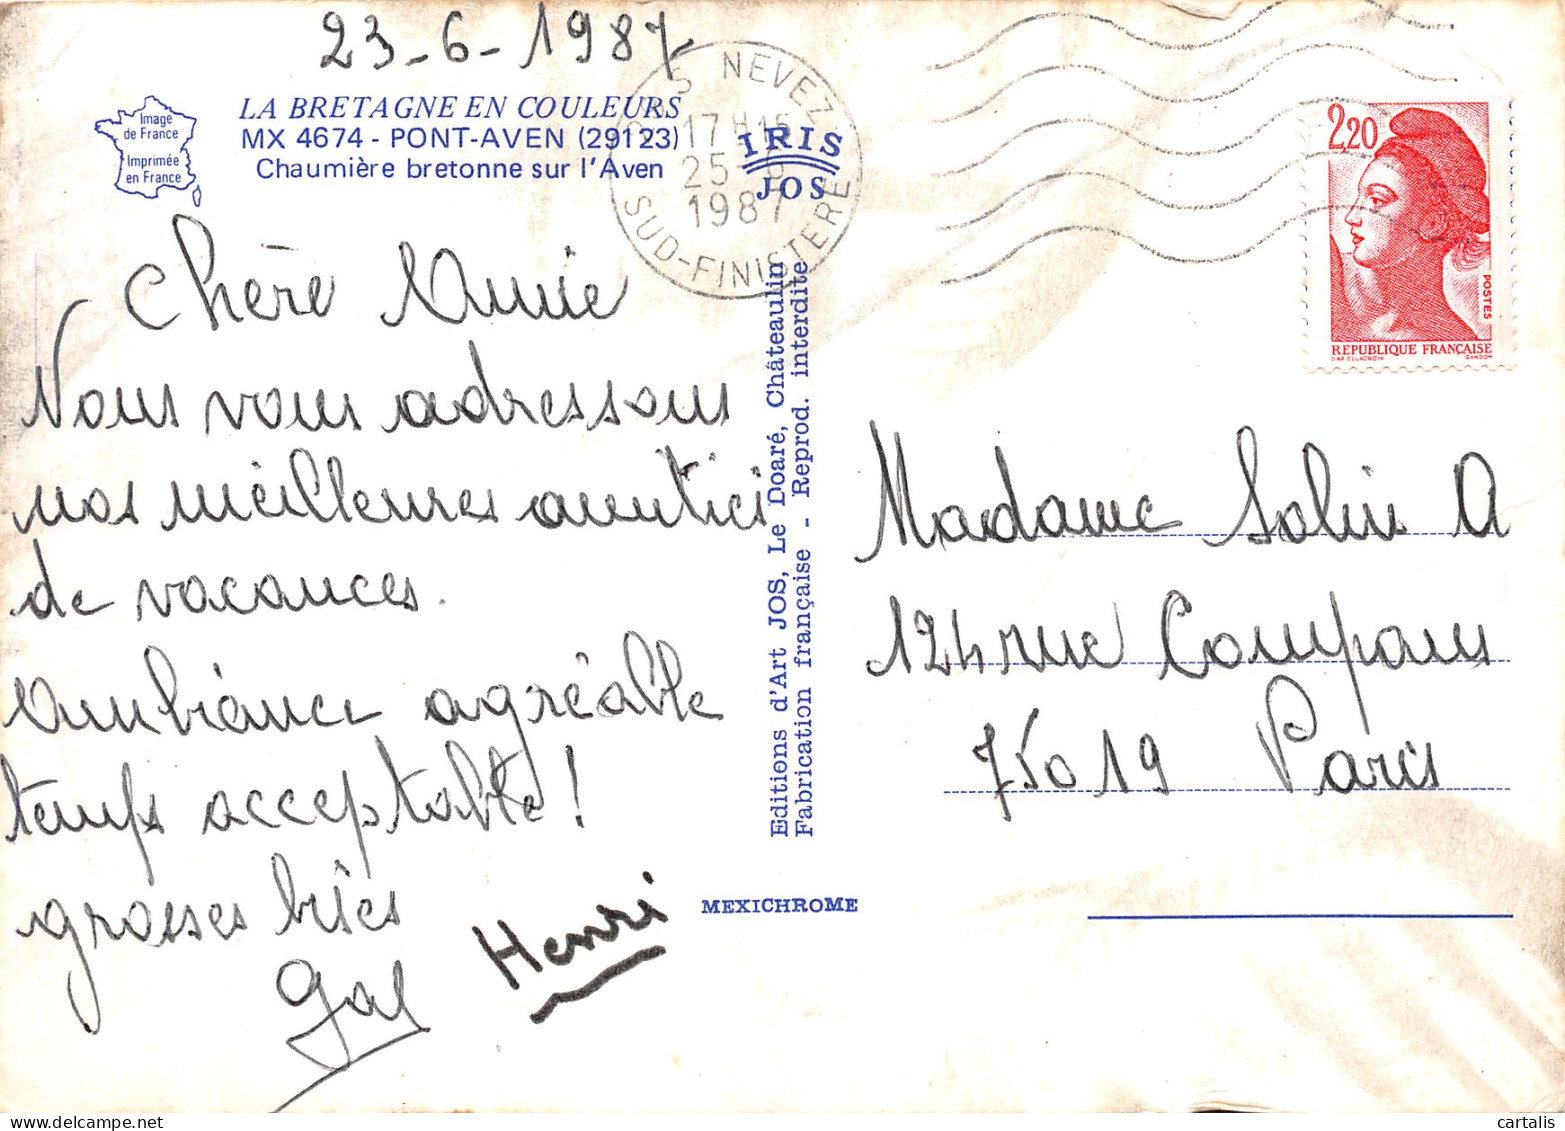 23-6-1987
Image
de France
Imprimée
en France
LA BRETAGNE EN COULEURS
MX 4674 - PONT-AVEN (29123)
Chaumière bretonne sur l'Aven
IRIS
JOS
NEVEZ
17 H 15
25
1987
SUD-FINISTERE
2,20
POSTES
REPUBLIQUE FRANÇAISE
D'AP. DELACROIX GANDON
Chère Annie
Nous vous adressons
nos meilleures amitiés
de vacances.
Ambiance agréable
temps acceptable !
grosses bises
Henri
Editions d'Art JOS, Le Doaré, Châteaulin
Fabrication française - Reprod. interdite
MEXICHROME
Madame Solin A
124 rue Compans
75019 Paris
cartalis